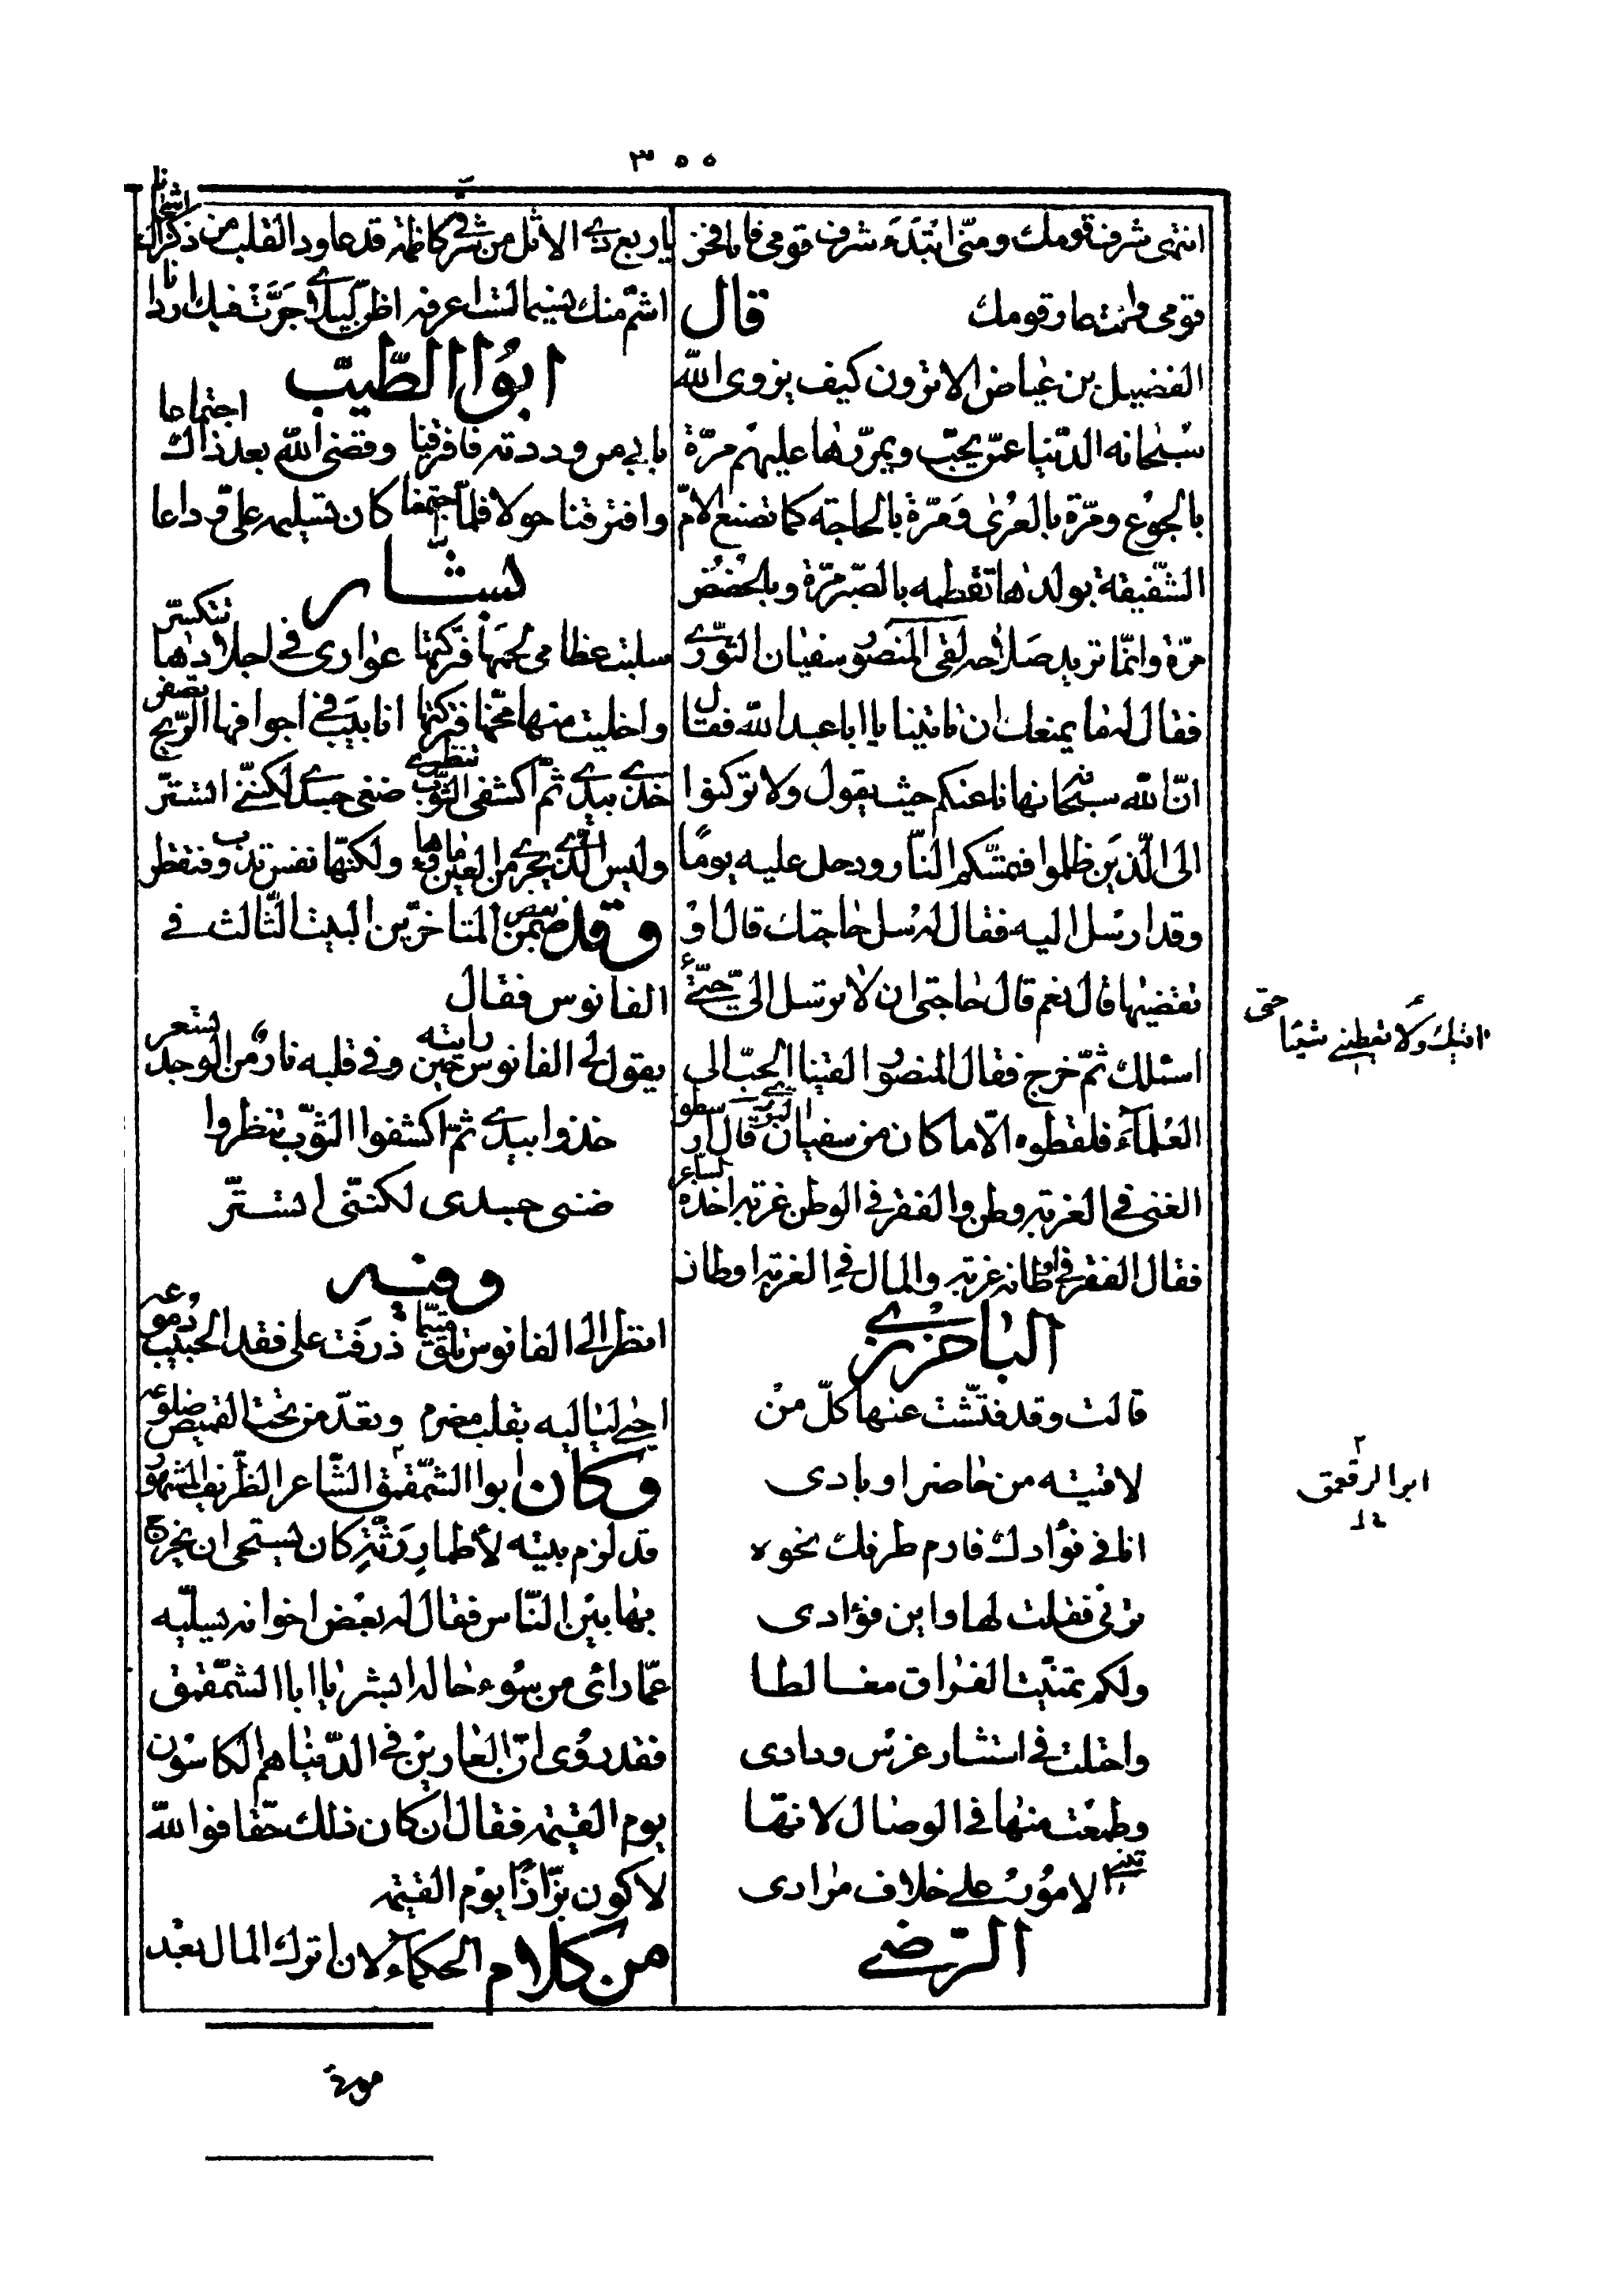 ٣٥٥
انتهى شرف قومك ومنّى ابتدء شرف قومى فانا فخر
قومى وانت عار قومك
قال
الفضيل بن عياض الا ترون كيف يزوى الله
سبحانه الدّنيا عمّن يحبّ ويمرّرها عليهم مرّة
بالجوع ومرّة بالعرى ومرّة بالحاجة كما تصنع الامّ
الشّفيقة بولدها تفطمه بالصّبر مرّة وبالحضض
مرّة وانّما تريد صلاحه لقى المنصور سفيان الثّورى
فقال له ما يمنعك ان تاتينا يا ابا عبد الله فقال
انّ الله سبحانه نهانا عنكم حيث يقول ولا تركنوا
الى الّذين ظلموا فتمسّكم النّار ودخل عليه يوما
وقد ارسل اليه فقال له سل حاجتك قال او
تقضيها قال نعم قال حاجتى ان لا ترسل الىّ حتّى
اتيك ولا تعطينى شيئا حتى
اسئلك ثمّ خرج فقال المنصور القينا الحبّ الى
العلمآء فلقطوه الّا ما كان من سفيان الثورى قال ارسطو
الغنى فى الغربة وطن والفقر فى الوطن غربة اخذه الشاعر
فقال الفقر فى اوطانه غربة والمال فى الغربة اوطان
الباخرزى
قالت وقد فتّشت عنها كلّ من
لاقيته من حاضر او بادى
انا فى فؤادك فارم طرفك نحوه
ترنى فقلت لها واين فؤادى
ولكم تمنّيت الفراق مغالطا
واحتلت فى استثمار غرس ودادى
وطمعت منها فى الوصال لانّها
تبنى الامور على خلاف مرادى
الرّضى
يا ربع ذى الاثل من شرقى كاظمة قد عاود القلب من ذكراك اشجانا
اشمّ منك نسيما لست اعرفه اظنّ ليلاى جرّت فيك اردانا
ابو الطّيب
بابى من وددته فافترقنا وقضى الله بعد ذاك اجتماعا
وافترقنا حولا فلمّا اجتمعنا كان تسليمه علىّ وداعا
بشّار
سلبت عظامى لحمها فتركتها عوارى فى اجلادها تتكسّر
واخليت منها مخّها فتركتها انابيب فى اجوافها الرّيح تصفر
خذى بيدى ثمّ اكشفى الثّوب تنظرى ضنى جسدى لكنّنى اتستّر
وليس الّذى يجرى من العين ماؤها ولكنّها نفس تذوب وتقطر
وقد ضمّن بعض المتاخّرين البيت الثّالث فى
الفانوس فقال
يقول لى الفانوس حين رايته وفى قلبه نار من الوجد تسعر
خذوا بيدى ثمّ اكشفوا الثّوب تنظروا
ضنى جسدى لكنّنى اتستّر
وفيه
انظر الى الفانوس تلق متيّما ذرفت على فقد الحبيب دموعه
احيى لياليه بقلب مضرم وتعدّ من تحت القميص ضلوعه
وكان ابو الشّمقمق الشّاعر الظّريف المشهور
ابو الرقعمق
قد لزم بيته لاطمار رثّة كان يستحى ان يخرج
بها بين النّاس فقال له بعض اخوانه يسلّيه
عمّا راى من سوء حاله ابشر يا ابا الشّمقمق
فقد روى انّ العارين فى الدّنيا هم الكاسون
يوم القيمة فقال ان كان ذلك حقّا فو الله
لاكون بزّازا يوم القيمة
من كلام الحكمآء لان اترك المال بعد
موتى